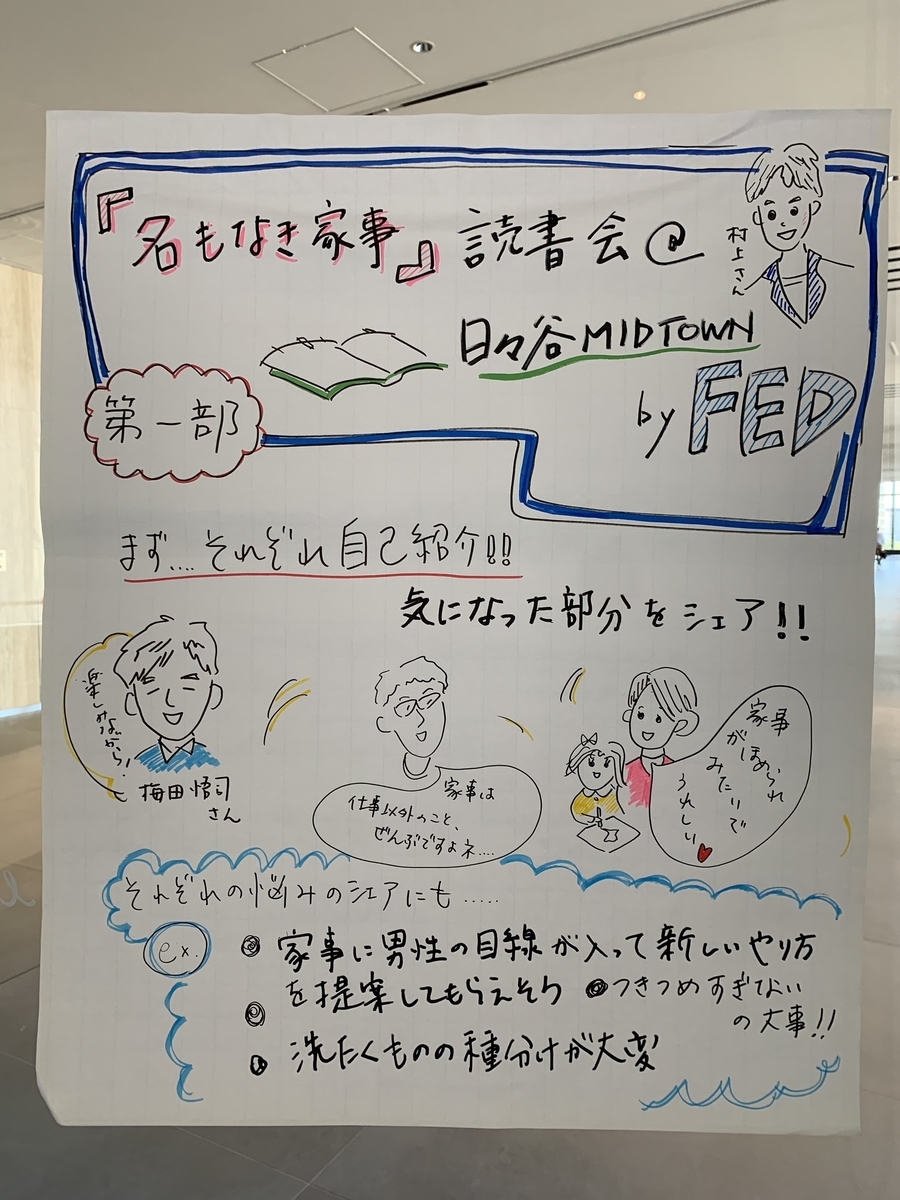 『名もなき家事』読書会@
村上さん
日々谷MIDTOWN
by FED
第一部
まず....それぞれ自己紹介!!
気になった部分をシェア!!
楽しみながら!
梅田悟司
さん
家事は
仕事以外のこと、
ぜんぶですよネ....
家事
がほめられ
みたいで
うれしい
それぞれの悩みのシェアにも.....
ex.
家事に男性の目線が入って新しいやり方
を提案してもらえそう
つきつめすぎない
の大事!!
洗たくものの種分けが大変